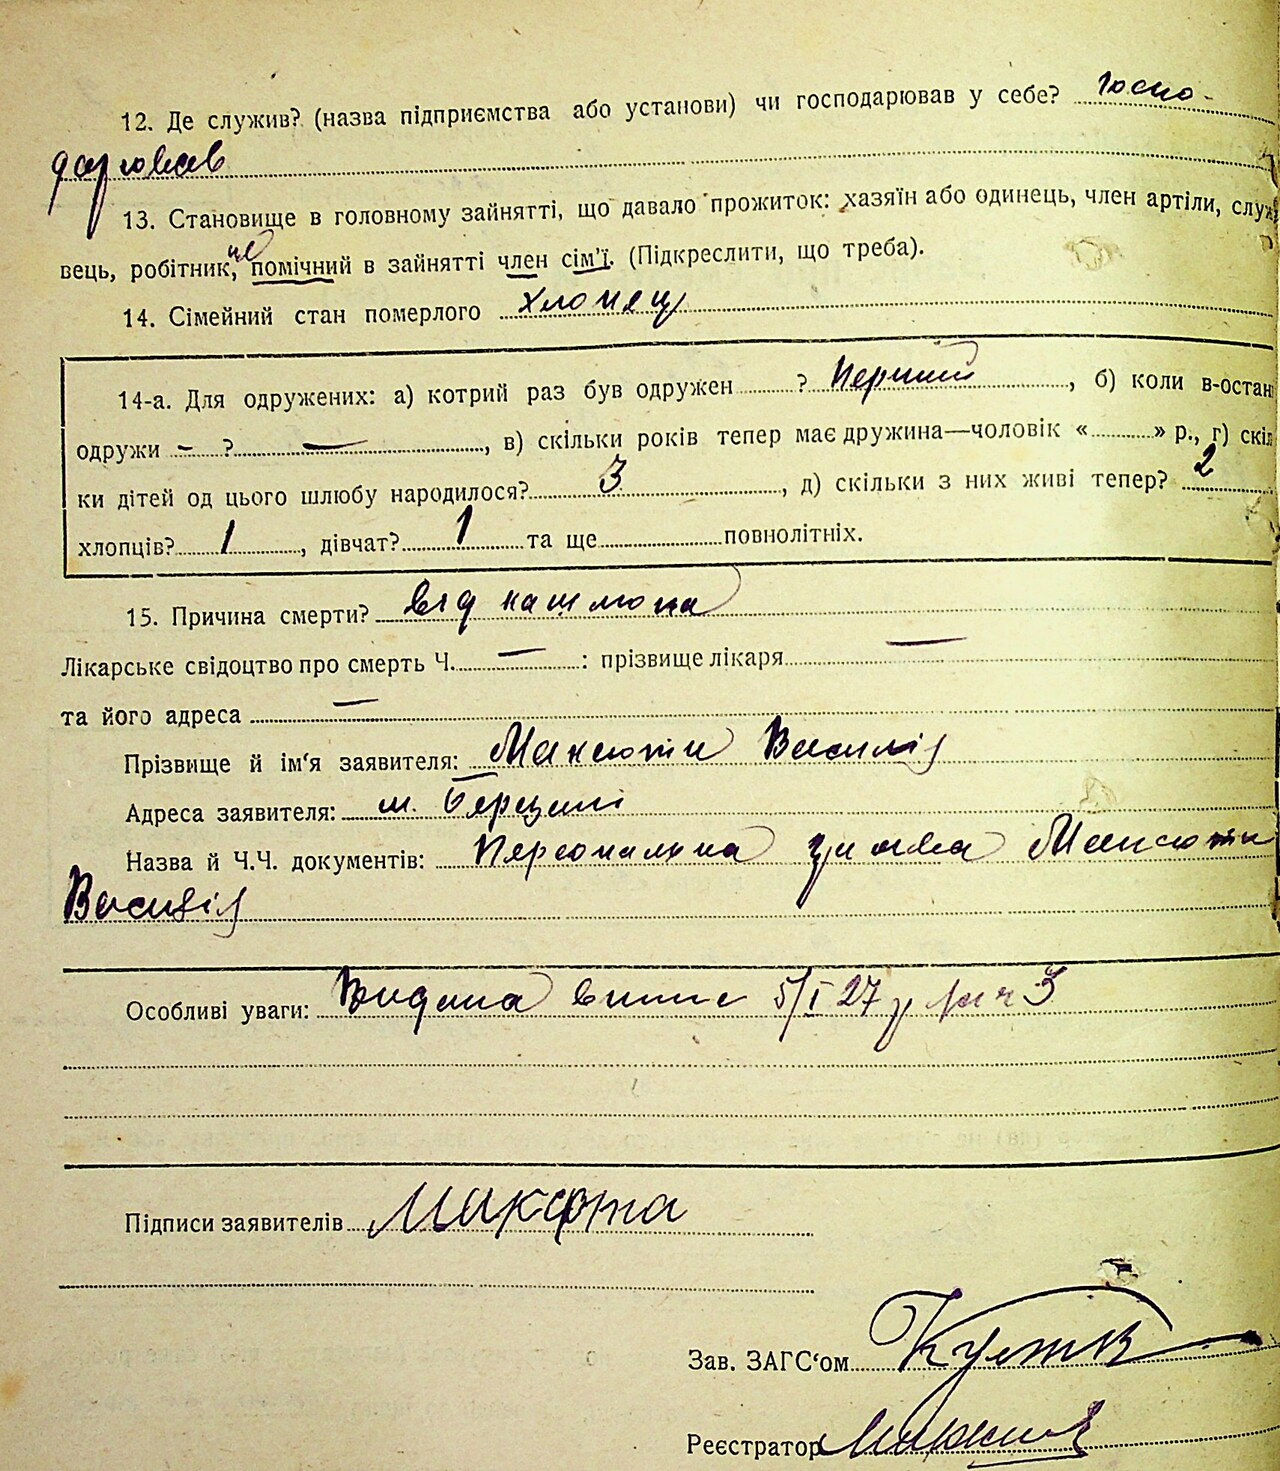 12. Де служив? (назва підприємства або установи) чи господарював у себе? Госпо-
дарював
13. Становище в головному зайнятті, що давало прожиток: хазяїн або одинець, член артіли, служ
вець, робітник, не помічний в зайнятті член сім'ї. (Підкреслити, що треба).
14. Сімейний стан померлого хлопец
14-а. Для одружених: а) котрий раз був одружен ? Перший, б) коли в-остан
одружи - ? —, в) скільки років тепер має дружина—чоловік « » р., г) скіл
ки дітей од цього шлюбу народилося? 3, д) скільки з них живі тепер? 2
хлопців? 1, дівчат? 1 та ще повнолітніх.
15. Причина смерти? від кашлюка
Лікарське свідоцтво про смерть Ч. — : прізвище лікаря —
та його адреса —
Прізвище й ім'я заявителя: Максюта Василій
Адреса заявителя: м.
Назва й Ч.Ч. документів: Персональна заява Максюти
Василія
Особливі уваги: Видана 5/I 27 р 3
Підписи заявителів Максюта
Зав. ЗАГС'ом
Реєстратор